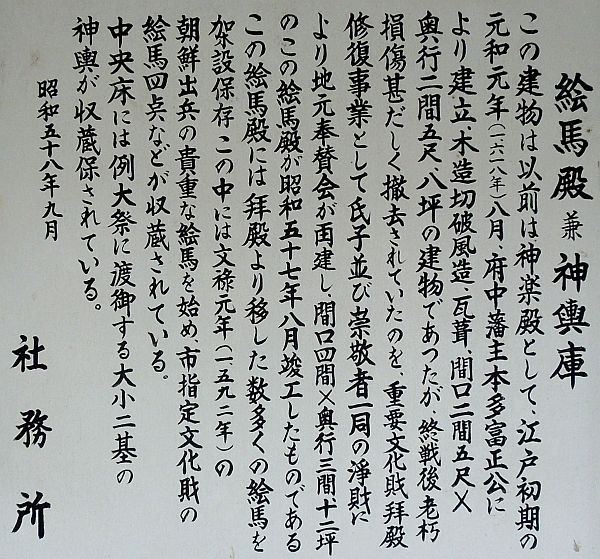 絵馬殿 兼 神輿庫
この建物は以前は神楽殿として、江戸初期の
元和元年(一六一八年)八月、府中藩主本多富正公に
より建立、木造切破風造、瓦葺、間口二間五尺×
奥行二間五尺、八坪の建物であつたが、終戦後老朽
損傷甚だしく撤去されていたのを、重要文化財拝殿
修復事業として氏子並び崇敬者一同の浄財に
より地元奉賛会が再建し、間口四間×奥行三間、十二坪
のこの絵馬殿が昭和五十七年八月竣工したものである
この絵馬殿には拝殿より移した数多くの絵馬を
架設保存 この中には文禄元年(一五九二年)の
朝鮮出兵の貴重な絵馬を始め、市指定文化財の
絵馬四点などが収蔵されている。
中央床には例大祭に渡御する大小二基の
神輿が収蔵保されている。
昭和五十八年九月
社務所